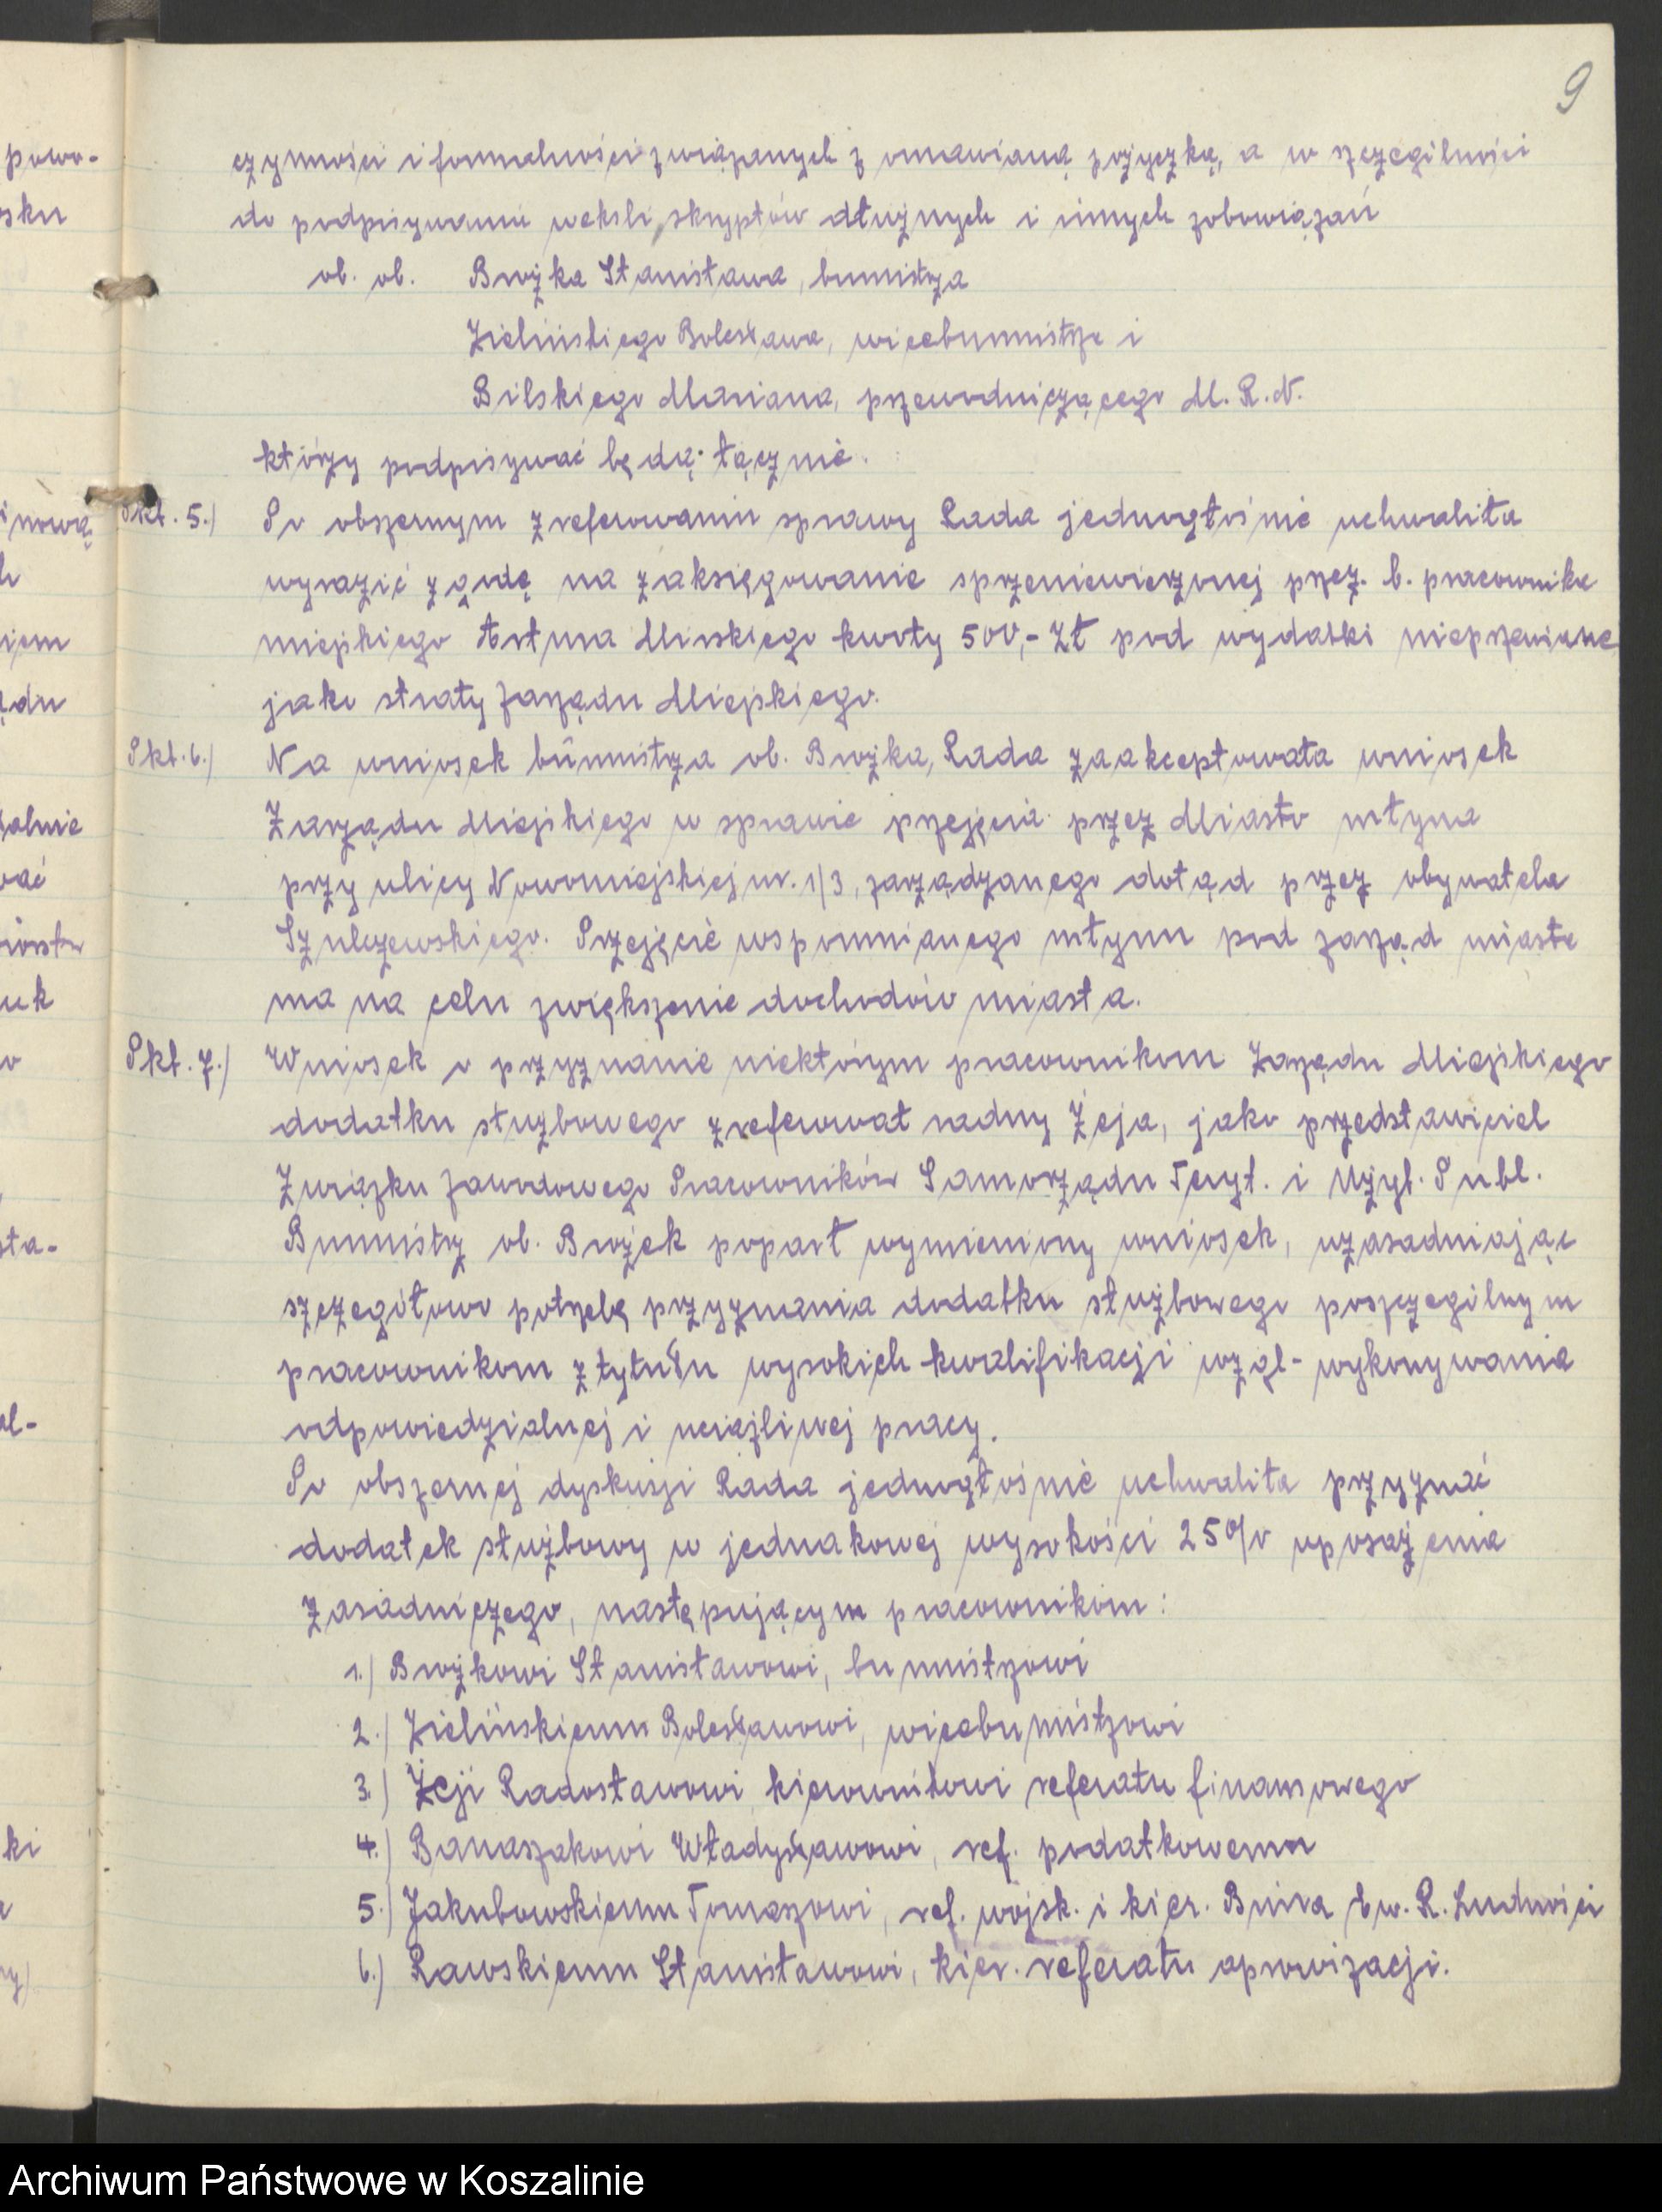 9
czynności i formalności związanych z omawianą pożyczką, a w szczególności
do podpisywania weksli, skryptów dłużnych i innych zobowiązań
ob. ob. Brożka Stanisława, burmistrza
Zielińskiego Bolesława, wiceburmistrza i
Bilskiego Mariana, przewodniczącego M. R. N.
którzy podpisywać będą łącznie.
Pkt. 5.) Po obszernym zreferowaniu sprawy Rada jednogłośnie uchwaliła
wyrazić zgodę na zaksięgowanie sprzeniewierzonej przez b. pracownika
miejskiego Artura Mirskiego kwoty 500,- Zł pod wydatki nieprzewidziane
jako straty Zarządu Miejskiego.
Pkt. 6.) Na wniosek burmistrza ob. Brożka, Rada zaakceptowała wniosek
Zarządu Miejskiego w sprawie przejęcia przez Miasto młyna
przy ulicy Nowomiejskiej nr. 1/3, zarządzanego dotąd przez obywatela
Szulczewskiego. Przejęcie wspomnianego młynu pod zarząd miasta
ma na celu zwiększenie dochodów miasta.
Pkt. 7.) Wniosek o przyznanie niektórym pracownikom Zarządu Miejskiego
dodatku służbowego zreferował radny Żeja, jako przedstawiciel
Związku Zawodowego Pracowników Samorządu Teryt. i Użyt. Publ.
Burmistrz ob. Brożek poparł wymieniony wniosek, uzasadniając
szczegółowo potrzebę przyznania dodatku służbowego poszczególnym
pracownikom z tytułu wysokich kwalifikacji wzgl- wykonywania
odpowiedzialnej i uciążliwej pracy.
Po obszernej dyskusji Rada jednogłośnie uchwaliła przyznać
dodatek służbowy w jednakowej wysokości 25% uposażenia
zasadniczego, następującym pracownikom:
1.) Brożkowi Stanisławowi, burmistrzowi
2.) Zielińskiemu Bolesławowi, wiceburmistrzowi
3.) Żeji Radosławowi kierownikowi referatu finansowego
4.) Banaszakowi Władysławowi, ref. podatkowemu
5.) Jakubowskiemu Tomaszowi, ref. wojsk. i kier. Biura Ew. R. Ludności
6.) Rawskiemu Stanisławowi, kier. referatu aprowizacji.
Archiwum Państwowe w Koszalinie